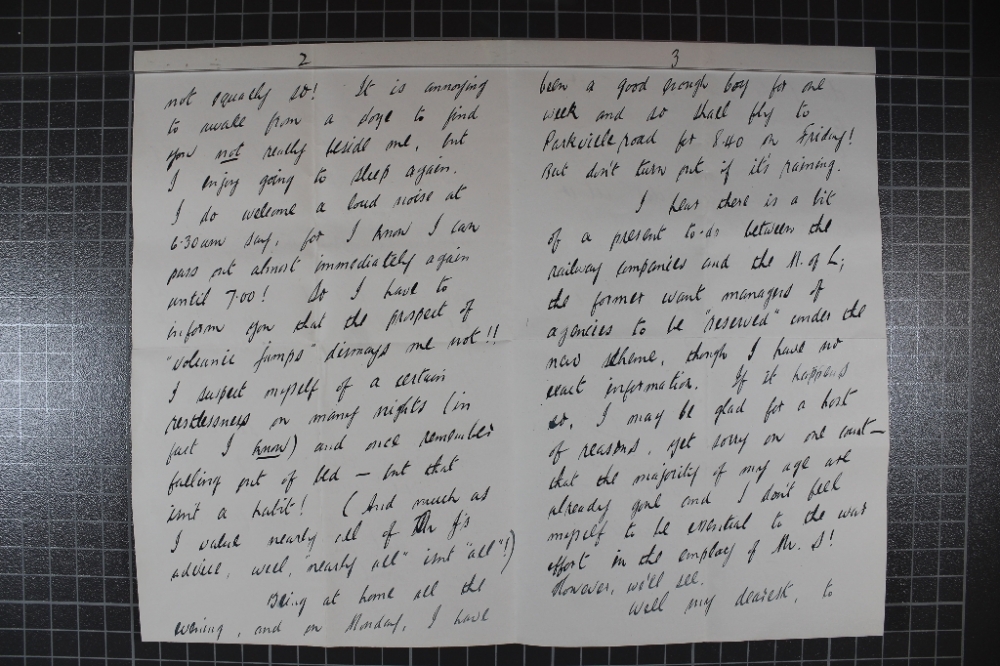 2
not equally so! It is annoying
to awake from a doze to find
you not really beside me, but
I enjoy going to sleep again.
I do welcome a loud noise at
6.30am say, for I know I can
pass out almost immediately again
until 7.00! So I have to
inform you that the prospect of
"volcanic jumps" dismays me not!!
I suspect myself of a certain
restlessness on many nights (in
fact I know) and once remember
falling out of bed — but that
isn't a habit! (And much as
I value nearly all of Mr J's
advice, well, "nearly all" isn't "all"!)
Being at home all the
evening, and on Monday, I have
3
been a good enough boy for one
week and so shall fly to
Parkville road for 8.40 on Friday!
But don't turn out if it's raining.
I hear there is a bit
of a present to-do between the
railway companies and the M. of L;
the former want managers of
agencies to be "reserved" under the
new scheme, though I have no
exact information. If it happens
so, I may be glad for a host
of reasons, yet sorry on one count —
that the majority of my age are
already gone and I don't feel
myself to be essential to the war
effort in the employ of Mr. S!
However, we'll see.
Well my dearest, to